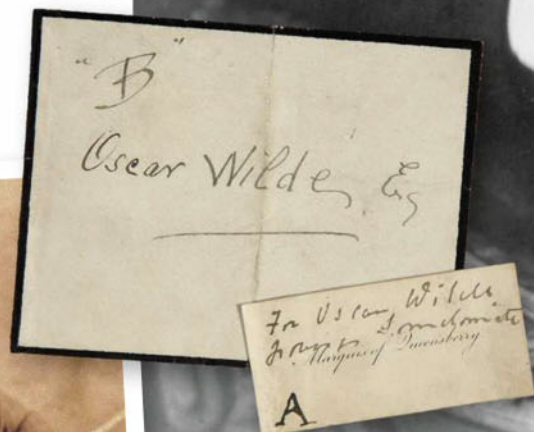 "B"
Oscar Wilde, Esq
For Oscar Wilde
Somdomite
Marquis of Queensberry
A